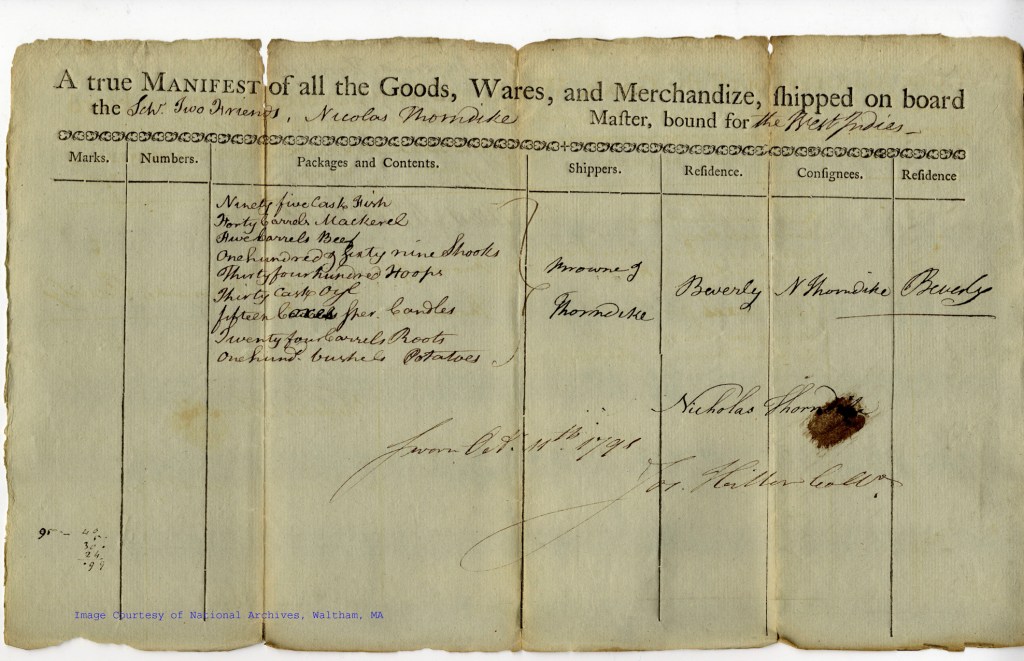 A true MANIFEST of all the Goods, Wares, and Merchandize, ſhipped on board
the Schr. Two Friends, Nicolas Thorndike Maſter, bound for the West Indies
Marks. Numbers. Packages and Contents. Shippers. Reſidence. Conſignees. Reſidence
Ninety five Cask Fish
Forty barrels Mackerel
Five barrels Beef
One hundred & sixty nine Shooks
Thirty four hundred Hoops
Thirty Cask Oyl
fifteen Boxes Sper. Candles
Twenty four barrels Roots
One hund. bushels Potatoes
Browne &
Thorndike
Beverly
N Thorndike
Beverly
Nicholas Thorn
Sworn Oct. 11th 1791
Jos. Hiller Collr
95 - 40
5
30
24
99
Image Courtesy of National Archives, Waltham, MA